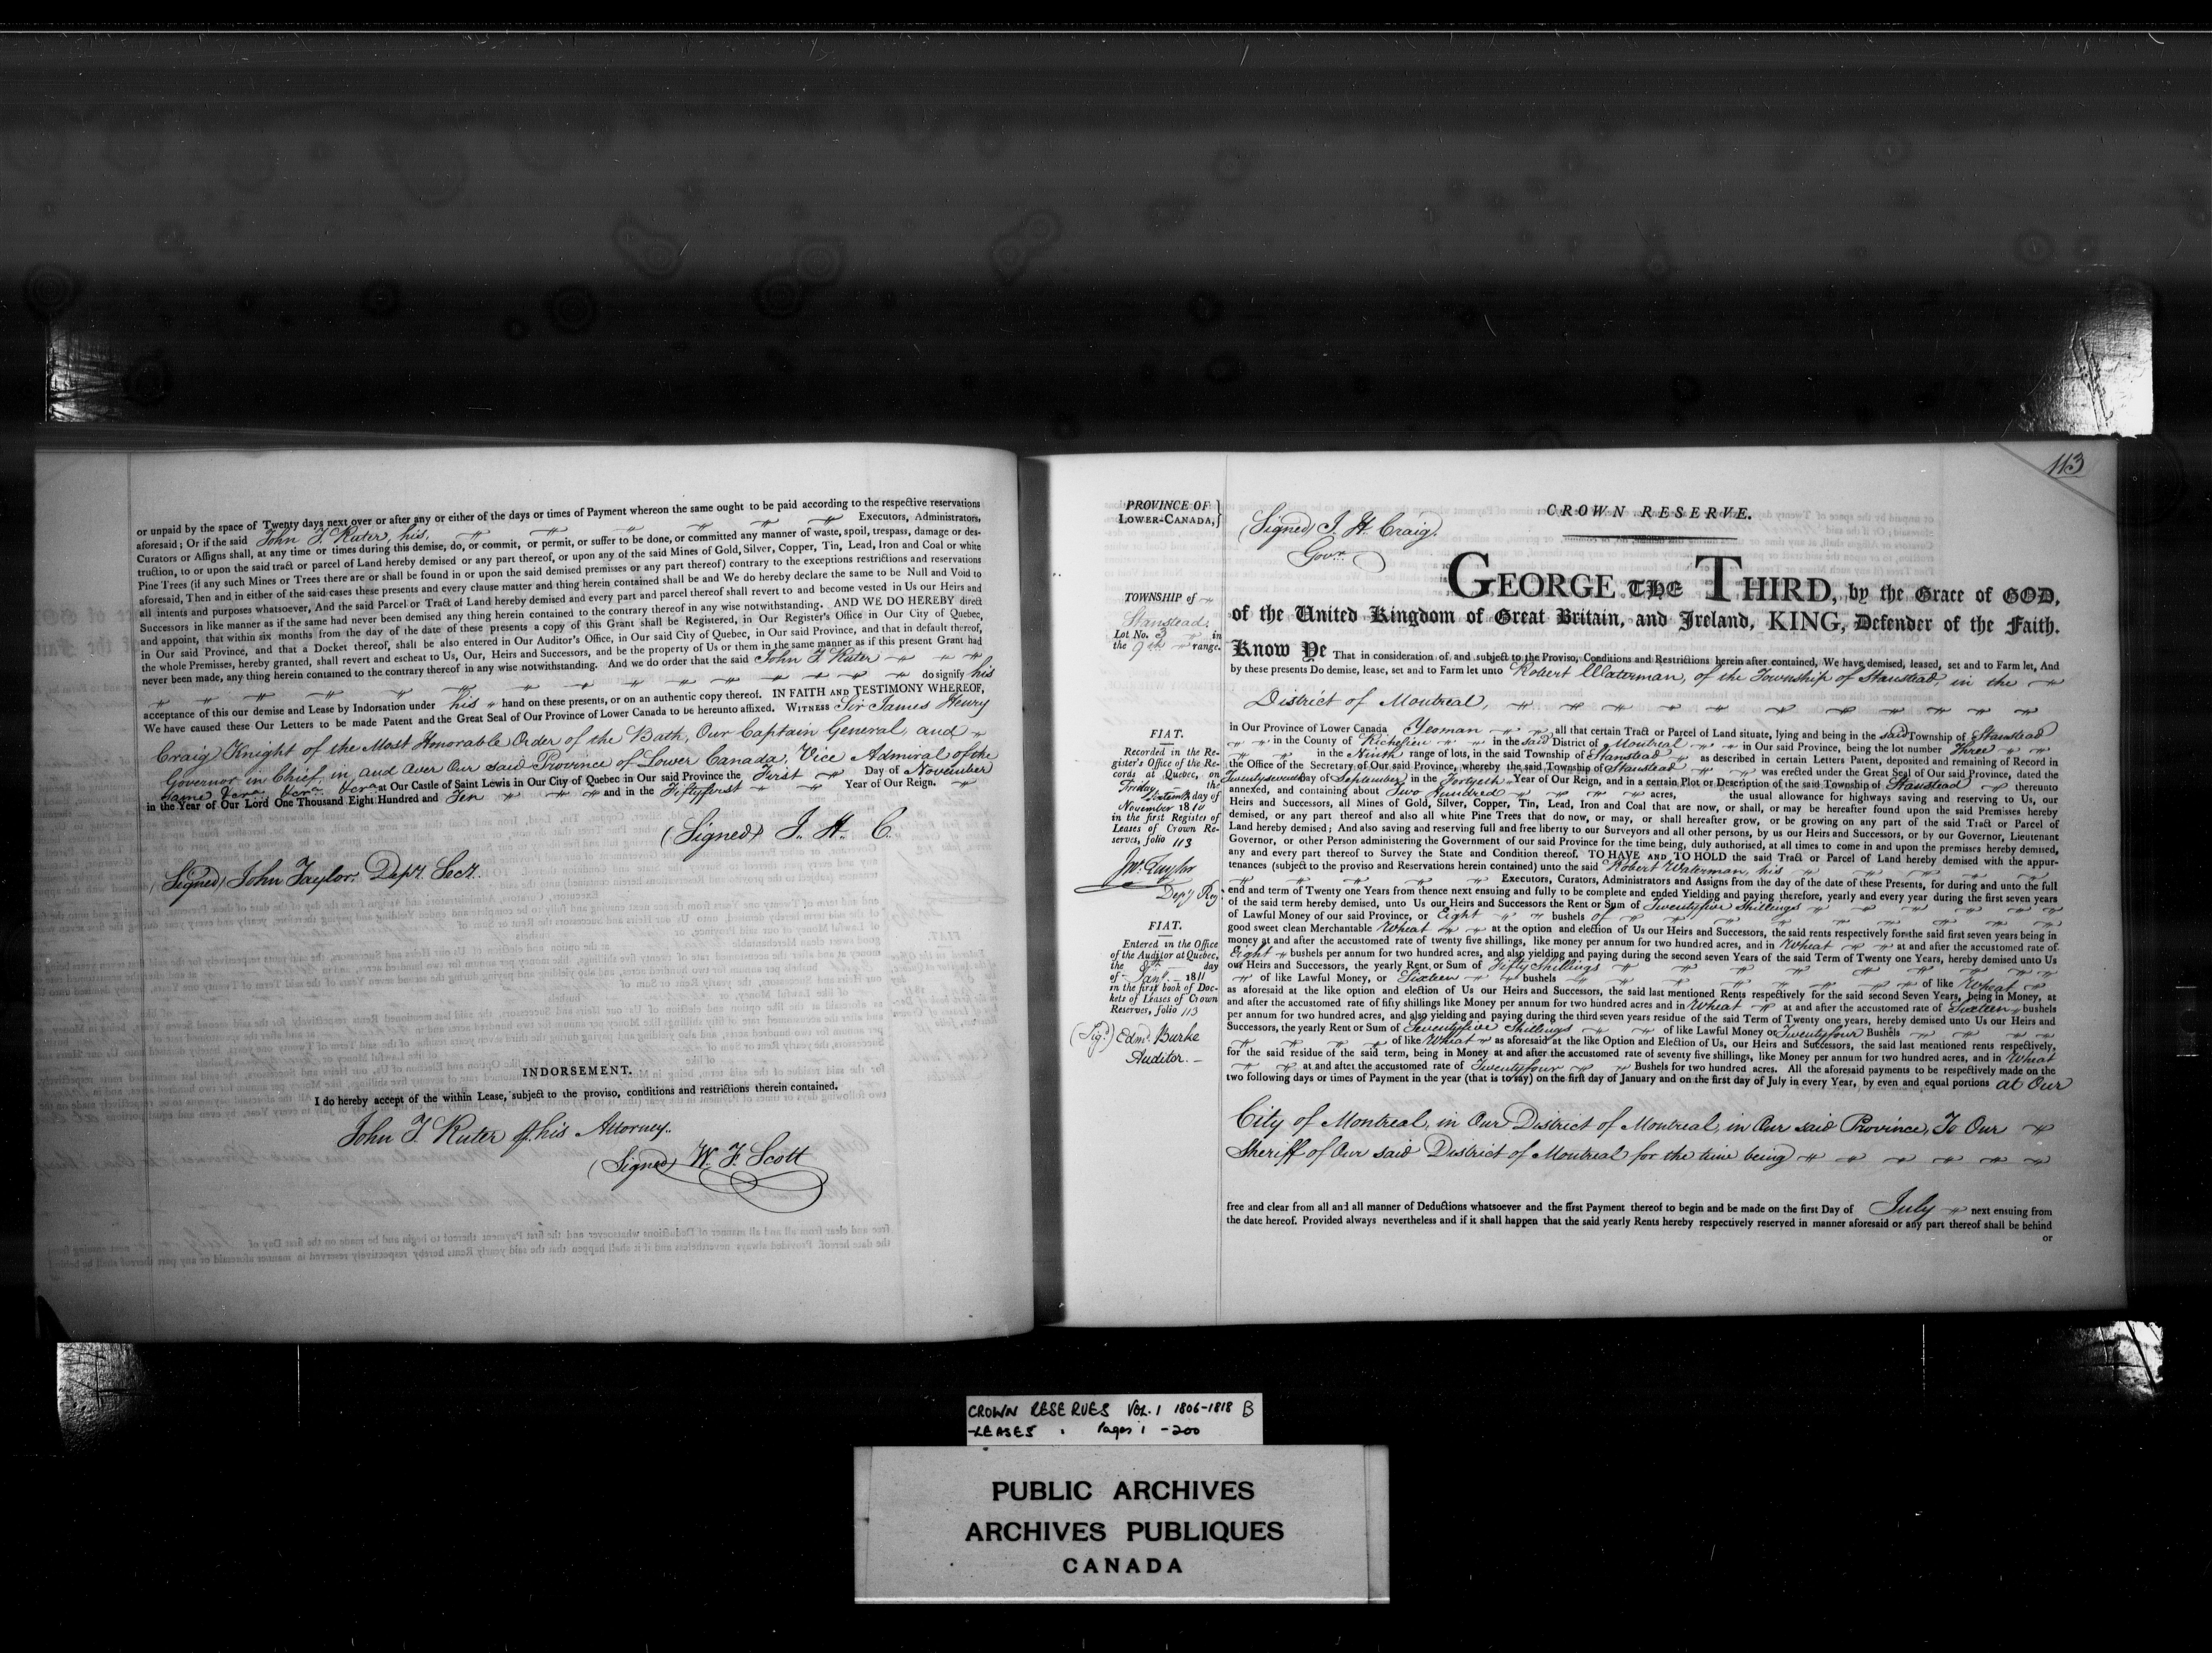 or unpaid by the space of Twenty days next over or after any or either of the days or times of Payment whereon the same ought to be paid according to the respective reservations
aforesaid; Or if the said John F. Ruter, his, Executors, Administrators,
Curators or Assigns shall, at any time or times during this demise, do, or commit, or permit, or suffer to be done, or committed any manner of waste, spoil, trespass, damage or des-
truction, to or upon the said tract or parcel of Land hereby demised or any part thereof, or upon any of the said Mines of Gold, Silver, Copper, Tin, Lead, Iron and Coal or white
Pine Trees (if any such Mines or Trees there are or shall be found in or upon the said demised premises or any part thereof) contrary to the exceptions restrictions and reservations
aforesaid, Then and in either of the said cases these presents and every clause matter and thing herein contained shall be and We do hereby declare the same to be Null and Void to
all intents and purposes whatsoever, And the said Parcel or Tract of Land hereby demised and every part and parcel thereof shall revert to and become vested in Us our Heirs and
Successors in like manner as if the same had never been demised any thing herein contained to the contrary thereof in any wise notwithstanding. AND WE DO HEREBY direct
and appoint, that within six months from the day of the date of these presents a copy of this Grant shall be Registered, in Our Register's Office in Our City of Quebec,
in Our said Province, and that a Docket thereof, shall be also entered in Our Auditor's Office, in Our said City of Quebec, in Our said Province, and that in default thereof,
the whole Premises, hereby granted, shall revert and escheat to Us, Our, Heirs and Successors, and be the property of Us or them in the same manner as if this present Grant had
never been made, any thing herein contained to the contrary thereof in any wise notwithstanding. And we do order that the said John F. Ruter
do signify his
acceptance of this our demise and Lease by Indorsation under his hand on these presents, or on an authentic copy thereof. IN FAITH AND TESTIMONY WHEREOF,
We have caused these Our Letters to be made Patent and the Great Seal of Our Province of Lower Canada to be hereunto affixed. WITNESS Sir James Henry
Craig Knight of the Most Honorable Order of the Bath, Our Captain General, and
Governor in Chief, in, and over Our said Province of Lower Canada, Vice Admiral of the
same &c.a &c.a &c.a at Our Castle of Saint Lewis in Our City of Quebec in Our said Province the First Day of November
in the Year of Our Lord One Thousand Eight Hundred and Ten and in the Fiftyfirst Year of Our Reign.
(Signed) J. H. C.
(Signed) John Taylor. Depy. Secy.
INDORSEMENT.
I do hereby accept of the within Lease, subject to the proviso, conditions and restrictions therein contained.
John F. Ruter his Attorney.
(Signed) W. F. Scott
113
PROVINCE OF
LOWER-CANADA,
(Signed) J. H. Craig.
Govr.
CROWN RESERVE.
TOWNSHIP of
Stanstead.
Lot No. 3 in
the 9th range.
GEORGE THE THIRD, by the Grace of GOD,
of the United Kingdom of Great Britain, and Ireland, KING, Defender of the Faith.
Know Ye That in consideration of, and subject to the Proviso, Conditions and Restrictions herein after contained, We have demised, leased, set and to Farm let, And
by these presents Do demise, lease, set and to Farm let unto Robert Waterman, of the Township of Stanstead, in the
District of Montreal,
in Our Province of Lower Canada Yeoman all that certain Tract or Parcel of Land situate, lying and being in the said Township of Stanstead
in the County of Richelieu in the said District of Montreal in Our said Province, being the lot number Three
in the Ninth range of lots, in the said Township of Stanstead as described in certain Letters Patent, deposited and remaining of Record in
the Office of the Secretary of Our said Province, whereby the said Township of Stanstead was erected under the Great Seal of Our said Province, dated the
Twentyseventh day of September in the Fortyeth Year of Our Reign, and in a certain Plot or Description of the said Township of Stanstead thereunto
annexed, and containing about Two Hundred acres, the usual allowance for highways saving and reserving to Us, our
Heirs and Successors, all Mines of Gold, Silver, Copper, Tin, Lead, Iron and Coal that are now, or shall, or may be hereafter found upon the said Premises hereby
demised, or any part thereof and also all white Pine Trees that do now, or may, or shall hereafter grow, or be growing on any part of the said Tract or Parcel of
Land hereby demised; And also saving and reserving full and free liberty to our Surveyors and all other persons, by us our Heirs and Successors, or by our Governor, Lieutenant
Governor, or other Person administering the Government of our said Province for the time being, duly authorised, at all times to come in and upon the premises hereby demised,
any and every part thereof to Survey the State and Condition thereof. TO HAVE AND TO HOLD the said Tract or Parcel of Land hereby demised with the appur-
tenances (subject to the proviso and Reservations herein contained) unto the said Robert Waterman, his
Executors, Curators, Administrators and Assigns from the day of the date of these Presents, for during and unto the full
end and term of Twenty one Years from thence next ensuing and fully to be complete and ended Yielding and paying therefore, yearly and every year during the first seven years
of the said term hereby demised, unto Us our Heirs and Successors the Rent or Sum of Twentyfive Shillings
of Lawful Money of our said Province, or Eight bushels of
good sweet clean Merchantable Wheat at the option and election of Us our Heirs and Successors, the said rents respectively for the said first seven years being in
money at and after the accustomed rate of twenty five shillings, like money per annum for two hundred acres, and in Wheat at and after the accustomed rate of
Eight bushels per annum for two hundred acres, and also yielding and paying during the second seven Years of the said Term of Twenty one Years, hereby demised unto Us
our Heirs and Successors, the yearly Rent or Sum of Fifty Shillings
of like Lawful Money, or Sixteen bushels of like Wheat
as aforesaid at the like option and election of Us our Heirs and Successors, the said last mentioned Rents respectively for the said second Seven Years, being in Money, at
and after the accustomed rate of fifty shillings like Money per annum for two hundred acres and in Wheat at and after the accustomed rate of Sixteen bushels
per annum for two hundred acres, and also yielding and paying during the third seven years residue of the said Term of Twenty one years, hereby demised unto Us our Heirs and
Successors, the yearly Rent or Sum of Seventyfive Shillings of like Lawful Money or Twentyfour Bushels
of like Wheat as aforesaid at the like Option and Election of Us, our Heirs and Successors, the said last mentioned rents respectively,
for the said residue of the said term, being in Money at and after the accustomed rate of seventy five shillings, like Money per annum for two hundred acres, and in Wheat
at and after the accustomed rate of Twentyfour Bushels for two hundred acres. All the aforesaid payments to be respectively made on the
two following days or times of Payment in the year (that is to say) on the first day of January and on the first day of July in every Year, by even and equal portions at Our
City of Montreal, in Our District of Montreal, in Our said Province, To Our
Sheriff of Our said District of Montreal for the time being
free and clear from all and all manner of Deductions whatsoever and the first Payment thereof to begin and be made on the first Day of July next ensuing from
the date hereof. Provided always nevertheless and if it shall happen that the said yearly Rents hereby respectively reserved in manner aforesaid or any part thereof shall be behind
or
FIAT.
Recorded in the Re-
gister's Office of the Re-
cords at Quebec, on
Friday the
Sixteenth day of
November 1810
in the first Register of
Leases of Crown Re-
serves, folio 113
Jno. Taylor
Depy Reg.
FIAT.
Entered in the Office
of the Auditor at Quebec,
the 8th day
of Jany. 1811
in the first book of Doc-
kets of Leases of Crown
Reserves, folio 113
(Sigd.) Edmd. Burke
Auditor.
CROWN RESERVES VOL. 1 1806-1818 B
-LEASES . Pages i -200
PUBLIC ARCHIVES
ARCHIVES PUBLIQUES
CANADA